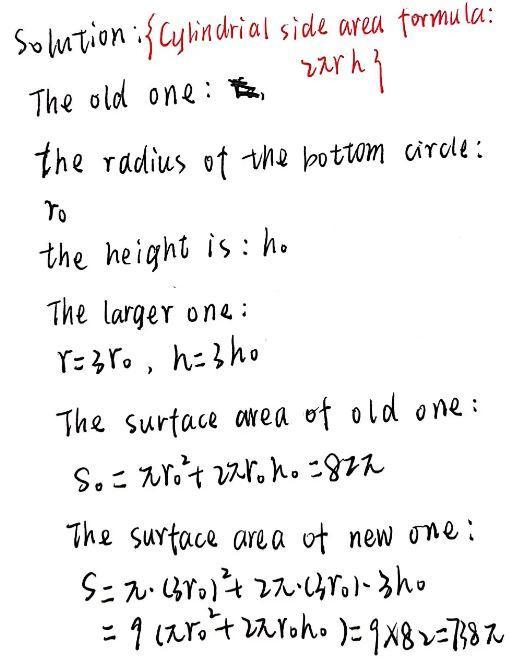 Solution:{Cylindrial side area formula:
2πrh}
The old one:
the radius of the bottom circle:
r₀
the height is: h₀
The larger one:
r=3r₀, h=3h₀
The surface area of old one:
S₀=πr₀²+2πr₀h₀=82π
The surface area of new one:
S=π·(3r₀)²+2π·(3r₀)·3h₀
=9(πr₀²+2πr₀h₀)=9×82=738π